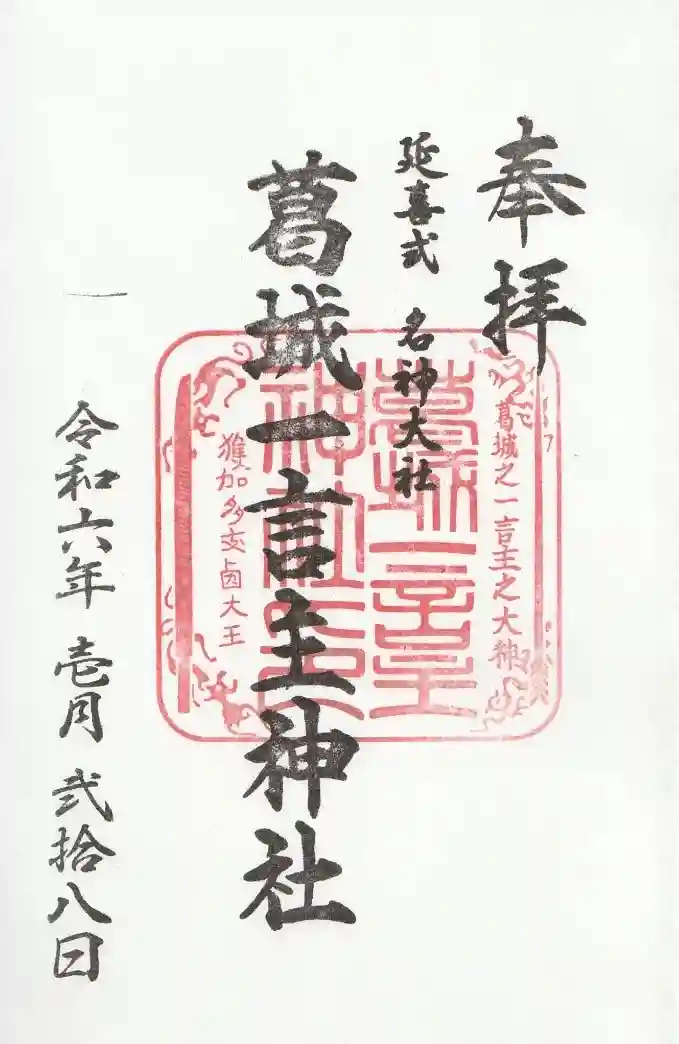 奉拝
延喜式 名神大社
葛城一言主神社
令和六年 壱月 弐拾八日
葛城之一言主之大神
葛城一言主
神社之印
獲加多支鹵大王